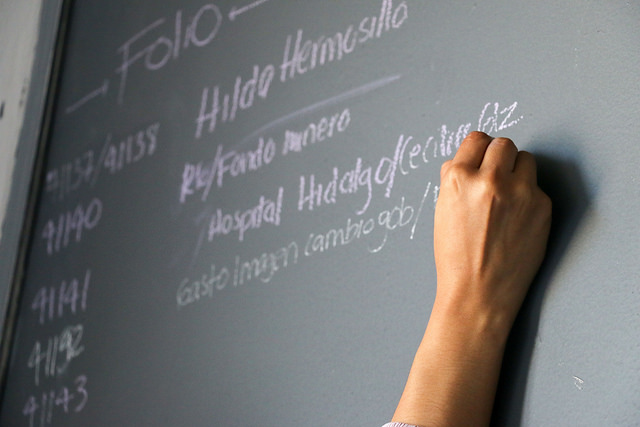 Folio
Hilda Hermosillo
41137/41138 Rb/Fondo minero
41140 Hospital Hidalgo/Cecilia
41141 Gasto Imagen cambio gob/
41192
41143